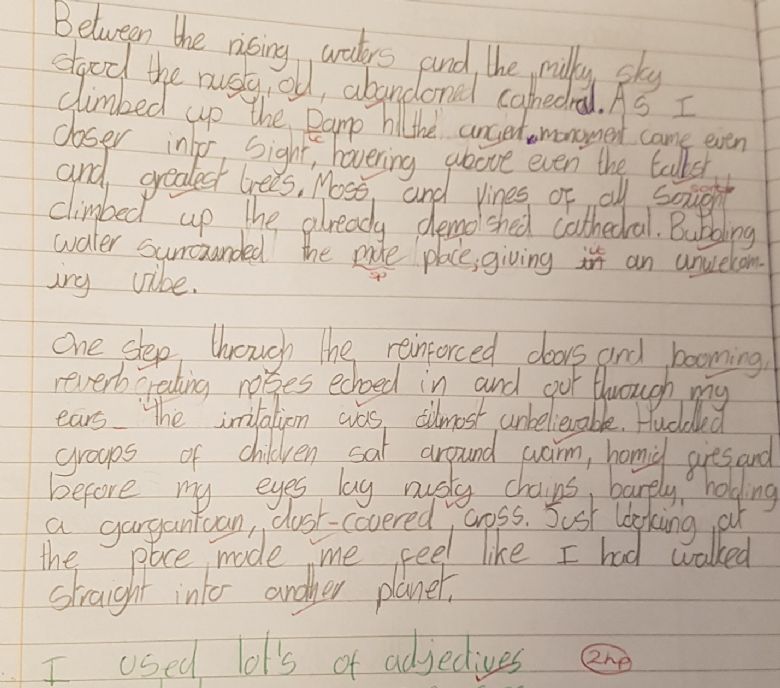 Between the rising waters and the milky sky
stood the rusty, old, abandoned cathedral. As I
climbed up the Damp hill the ancient monument came even
closer into sight, hovering above even the tallest
and greatest trees. Moss and vines of all sought
climbed up the already demolished cathedral. Bubbling
water surrounded the mute place, giving it an unwelcom-
ing vibe.
One step through the reinforced doors and booming,
reverb creating noises echoed in and out through my
ears. The irritation was almost unbelievable. Huddled
groups of children sat around warm, homid fires and
before my eyes lay rusty chains, barely holding
a gargantuan, dust-covered cross. Just looking at
the place made me feel like I had walked
straight into another planet.
I used lot's of adjectives 2hp